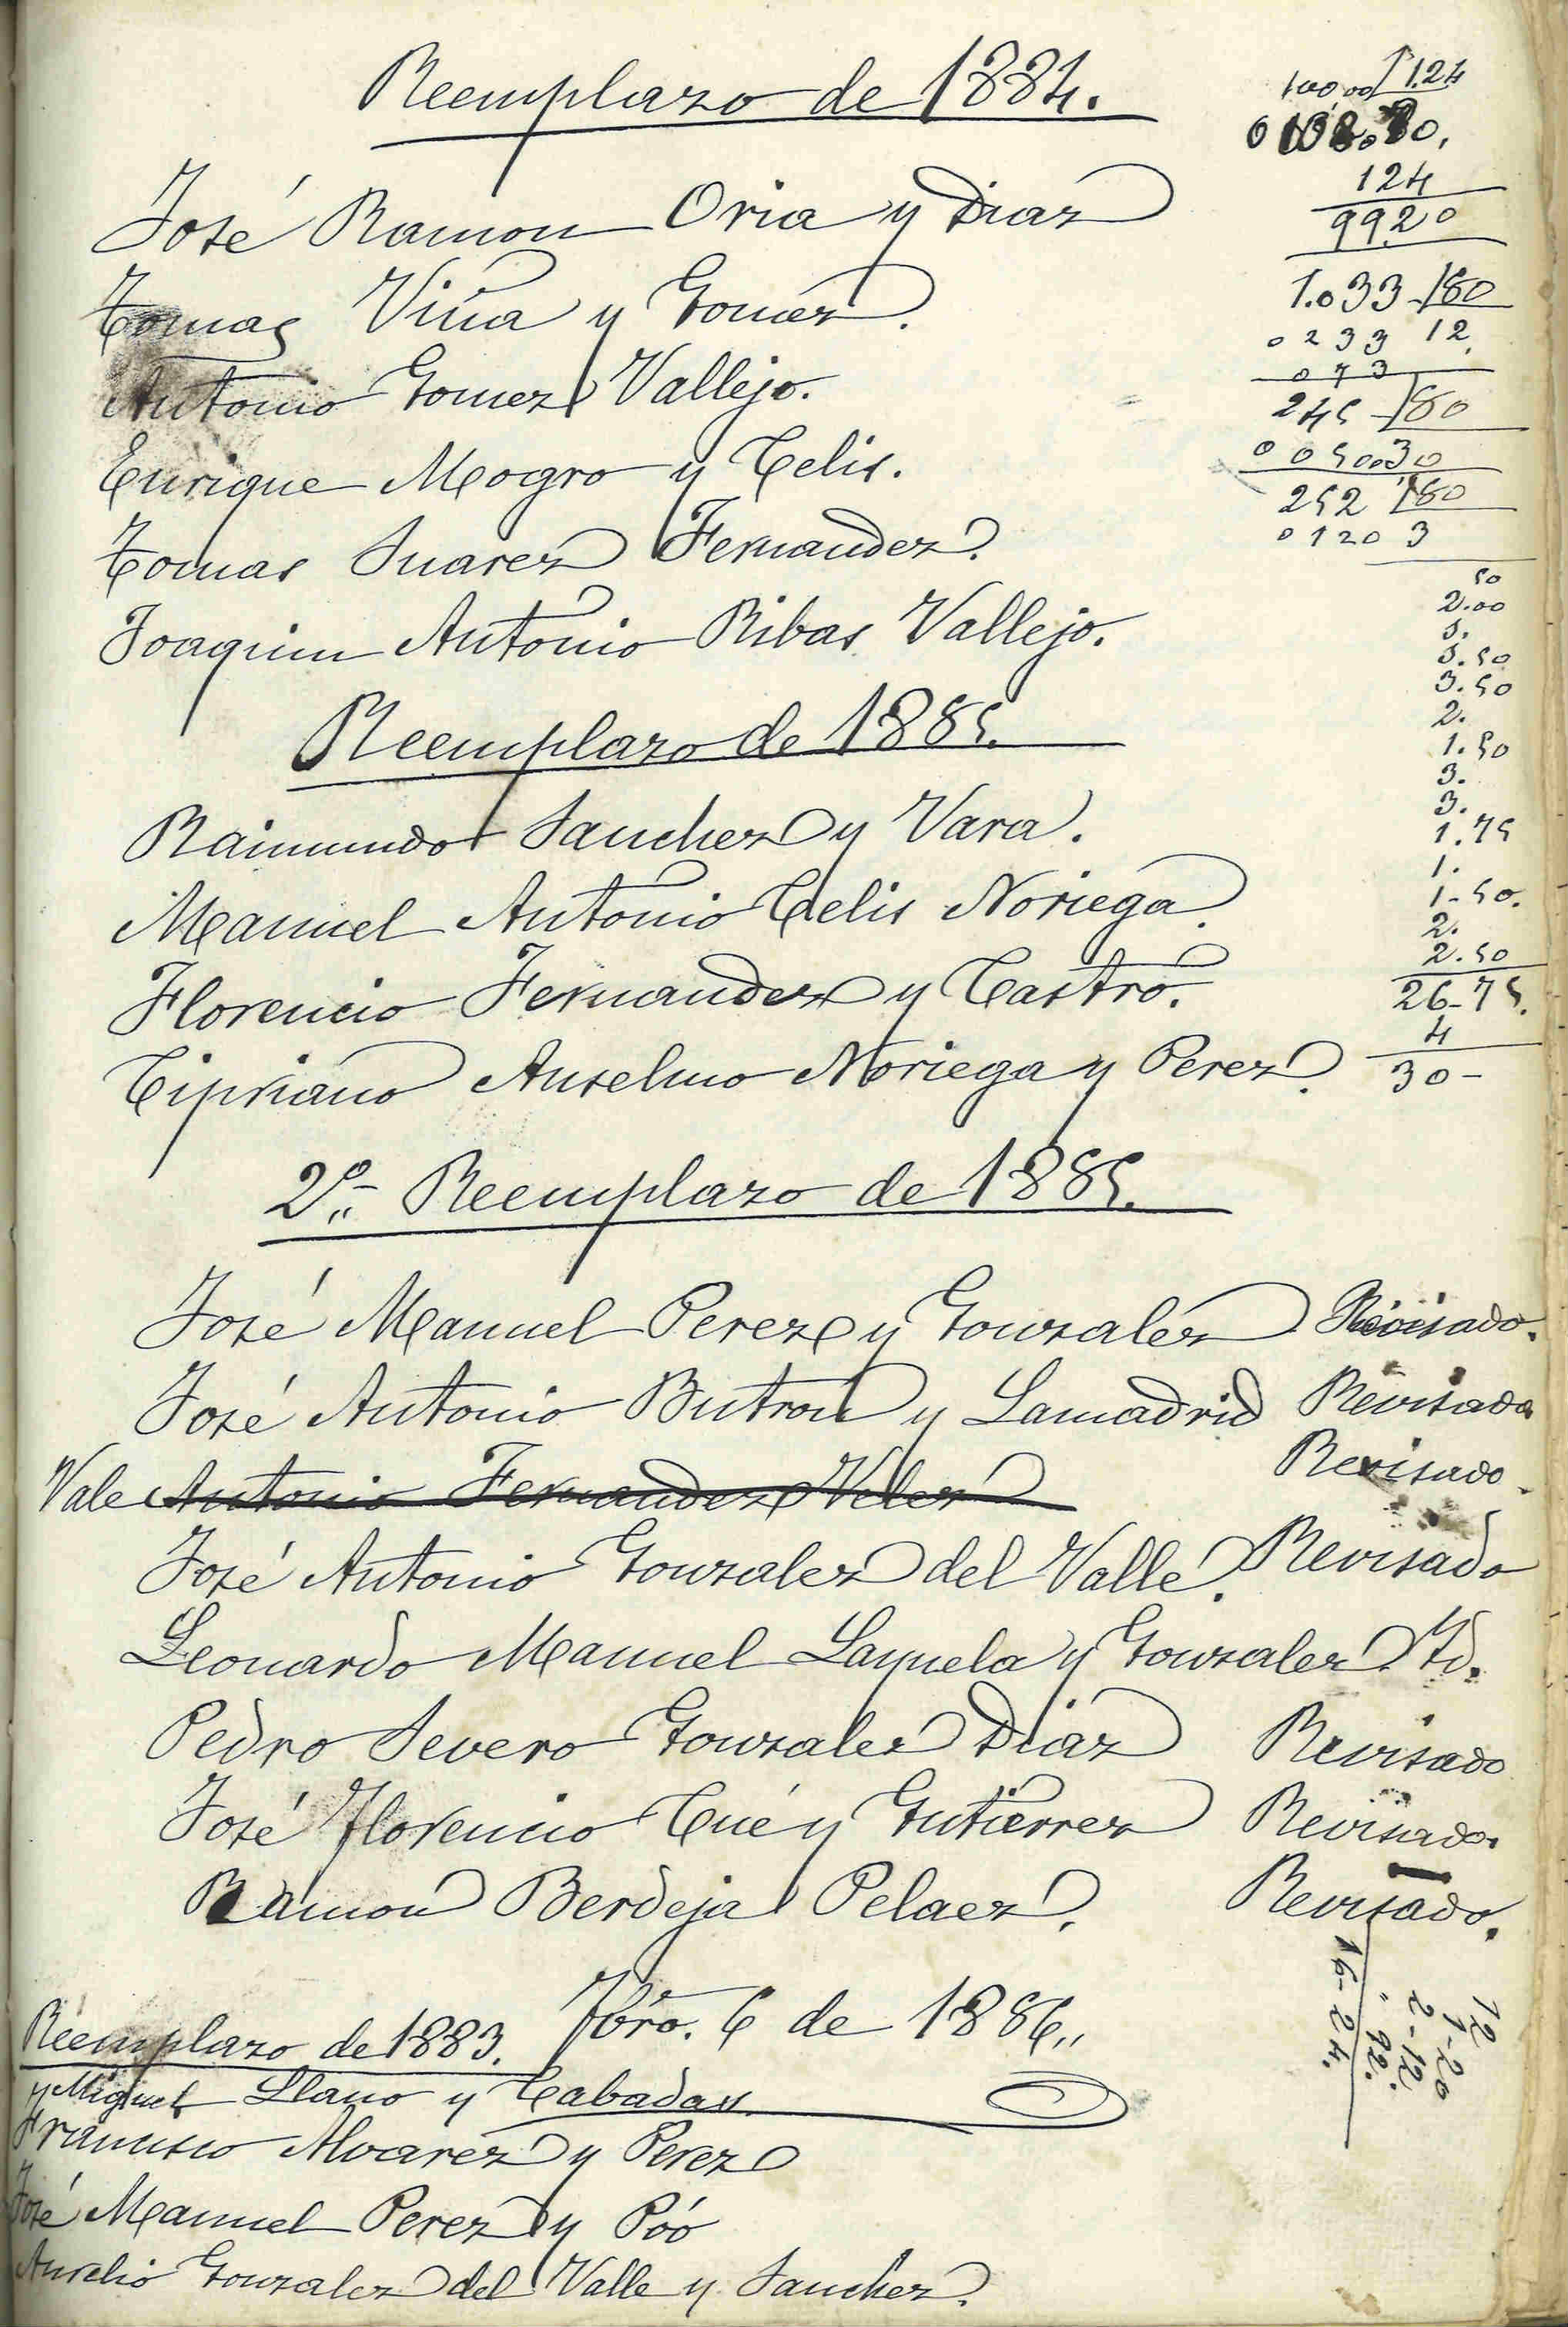 Reemplazo de 1884.
José Ramon Oria y Diaz
Tomas Viña y Gomez.
Antonio Gomez Vallejo.
Enrique Mogro y Celis.
Tomas Suarez Fernandez.
Joaquin Antonio Ribas Vallejo.
Reemplazo de 1885.
Raimundo Sanchez y Vara.
Manuel Antonio Celis Noriega.
Florencio Fernandez y Castro.
Cipriano Anselmo Noriega y Perez.
2º Reemplazo de 1885.
José Manuel Perez y Gonzalez Revisado.
José Antonio Butron y Lamadrid Revisado
Vale Antonio Fernandez Velez Revisado.
José Antonio Gonzalez del Valle. Revisado
Leonardo Manuel Layuela y Gonzalez Id.
Pedro Severo Gonzalez Diaz Revisado
José Florencio Cué y Gutierrez Revisado.
Ramon Berdeja Pelaez. Revisado.
Fbro. 6 de 1886,,
Reemplazo de 1883.
y Miguel Llano y Cabadas
Francisco Alvarez y Perez
José Manuel Perez y Póo
Aurelio Gonzalez del Valle y Sanchez.
100,00 124
124
9920
1.033 80
0233 12
073
245 80
0050.30
252 80
0120 3
50
2.00
3.
3.50
3.50
2.
1.50
3.
3.
1.75
1.
1-50.
2.
2.50
26-75.
4
30-
12
1-20
2-12.
" 92.
16-24.